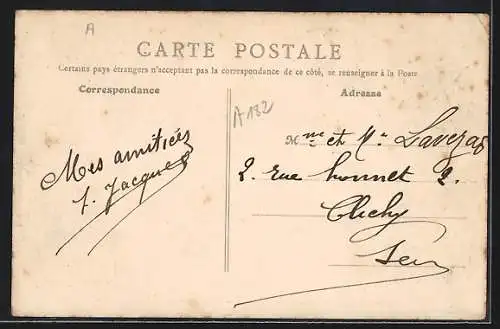 A
CARTE POSTALE
Certains pays étrangers n'acceptant pas la correspondance de ce côté, se renseigner à la Poste
Correspondance
Adresse
A 182
Mes amitiés
J. Jacques
Mme et Mr
2. rue 2.
Clichy
Seine